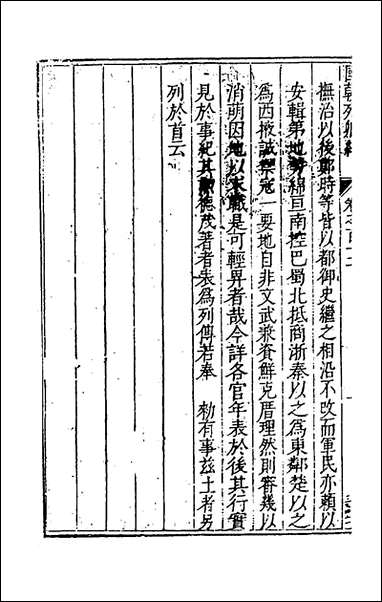 國朝列卿紀 卷之一百十二
撫治以後鄭時等皆以都御史繼之相沿不改而軍民亦賴以
安輯第地勢綿亘南控巴蜀北抵商浙秦以之為東鄰楚以之
為西掖誠禦寇一要地自非文武兼資鮮克厝理然則審幾以
消萌因地以求職是可輕畀者哉今詳各官年表於後其行實
見於事紀其勳德茂著者表為列傳若奉　勑有事茲土者另
列於首云